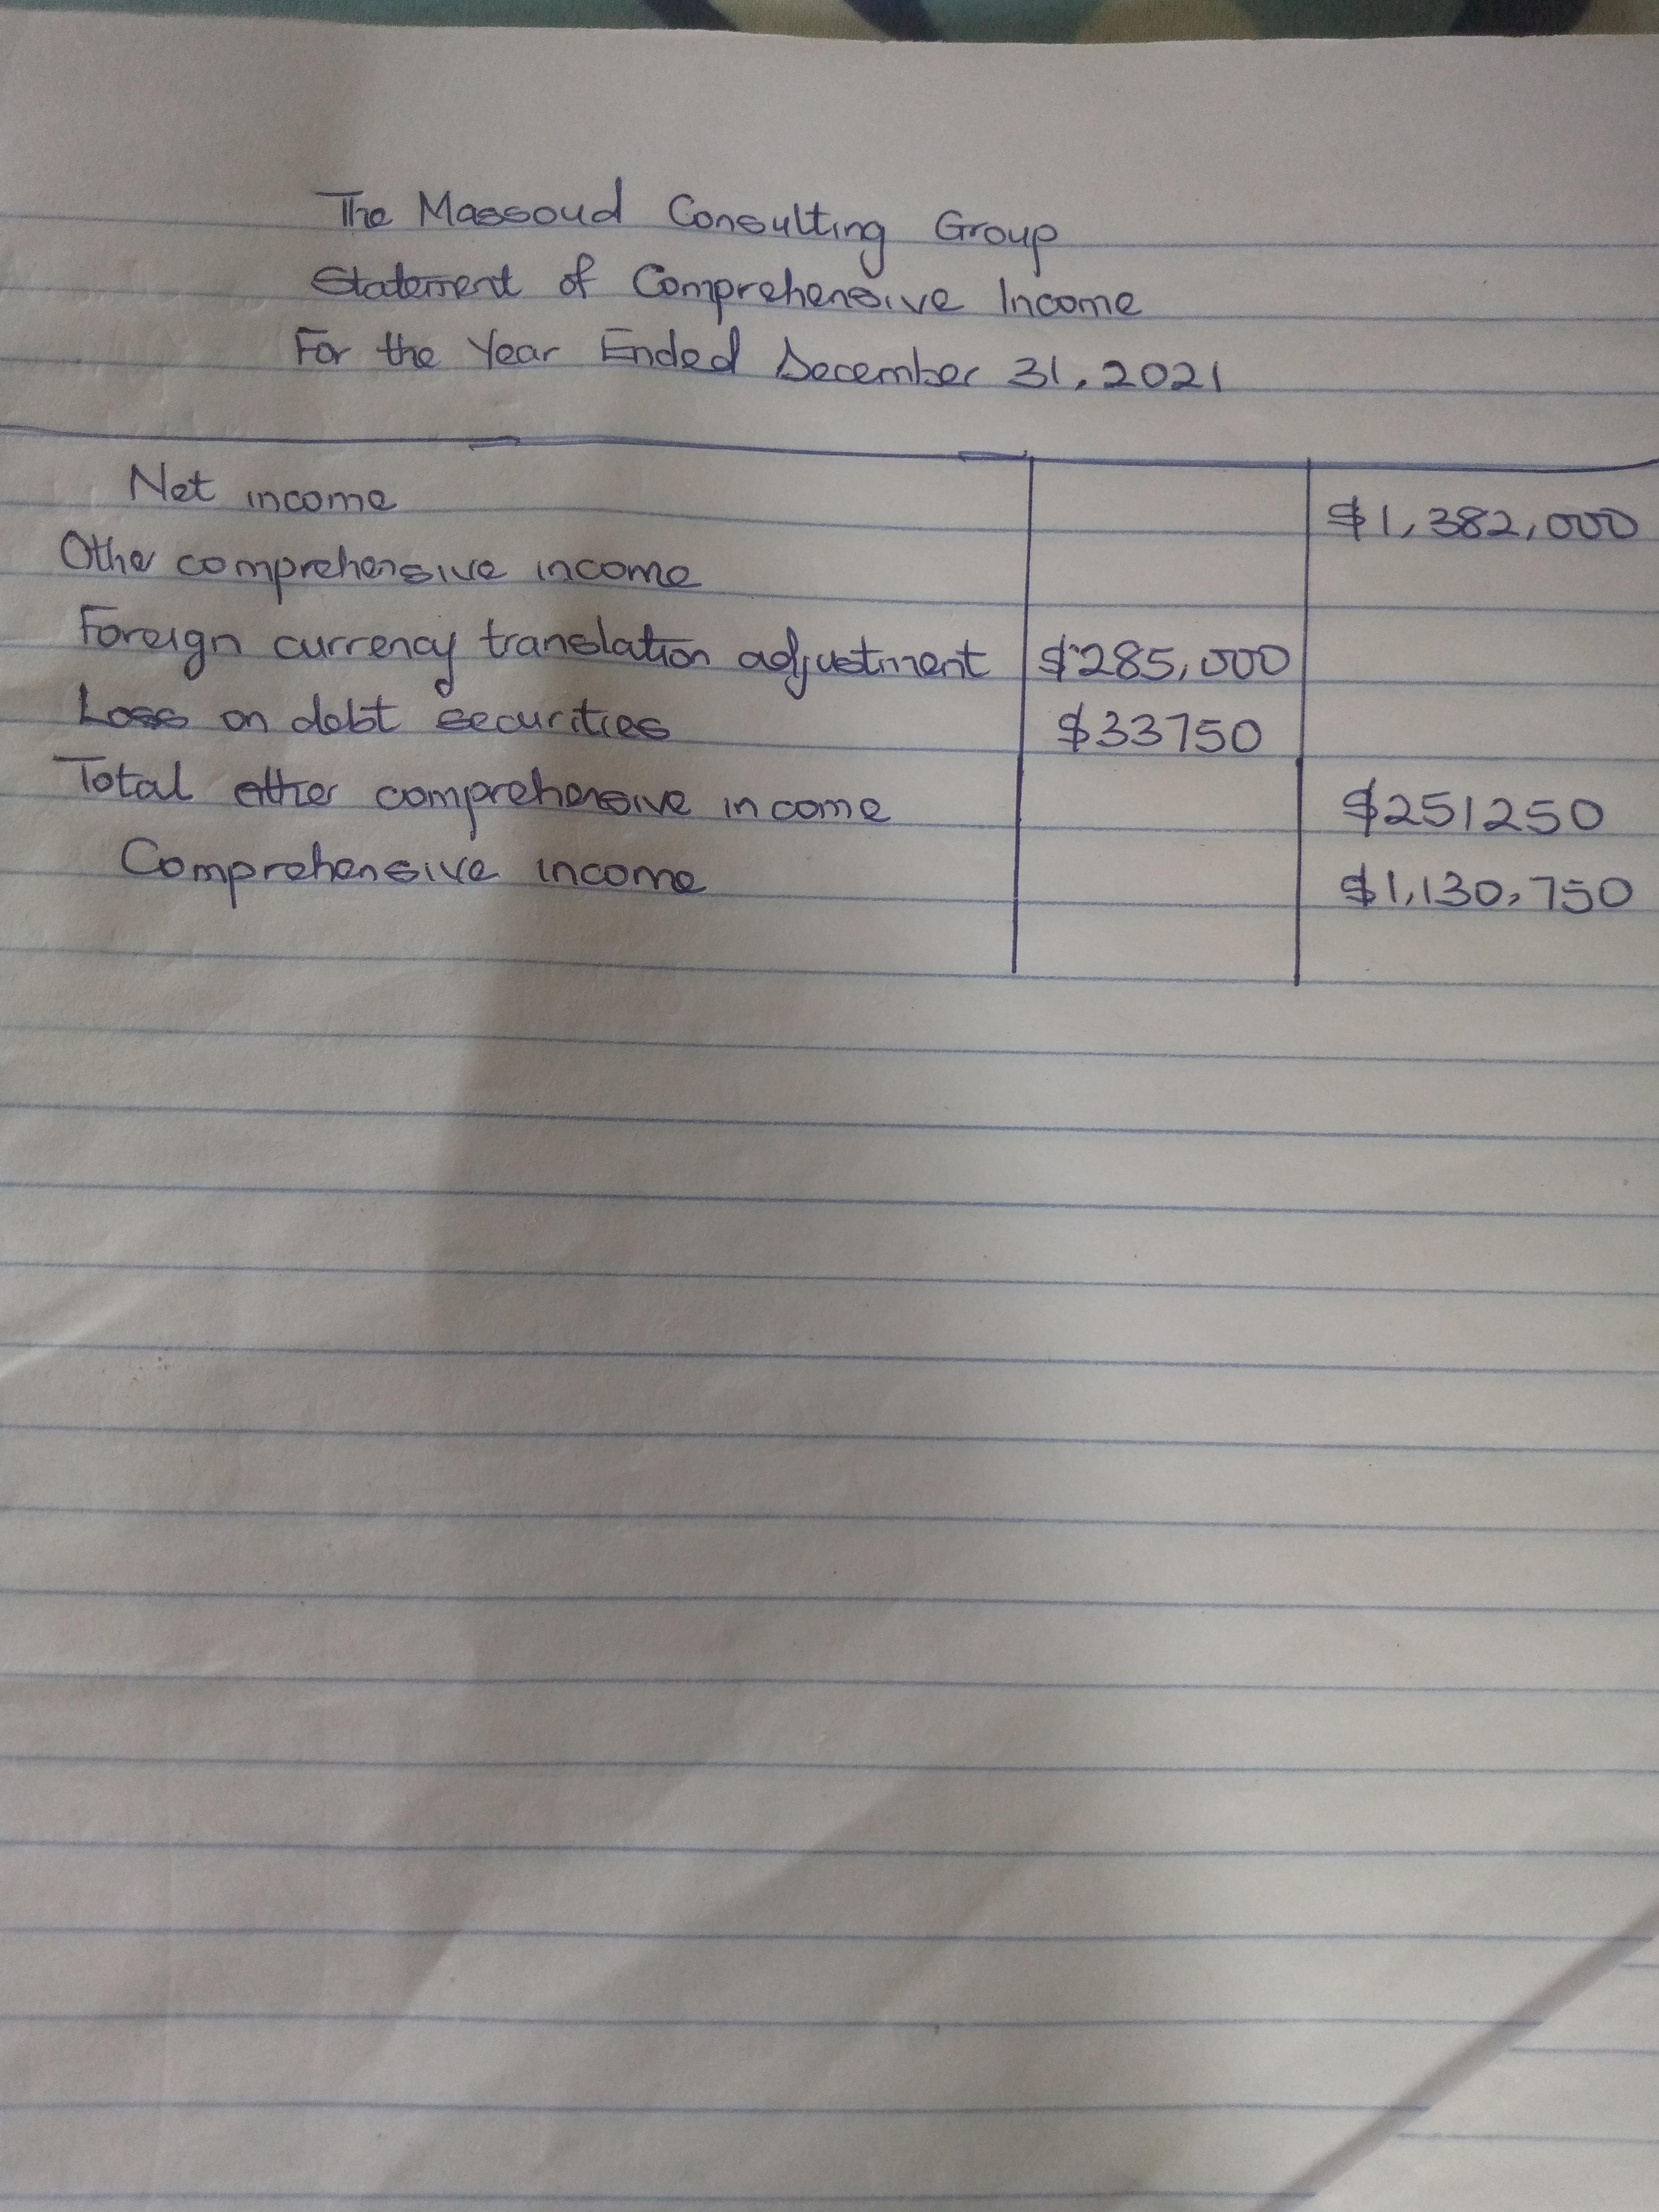 The Massoud Consulting Group
Statement of Comprehensive Income
For the Year Ended December 31, 2021
Net income $1,382,000
Other comprehensive income
Foreign currency translation adjustment $285,000
Loss on debt securities $33750
Total other comprehensive income $251250
Comprehensive income $1,130,750